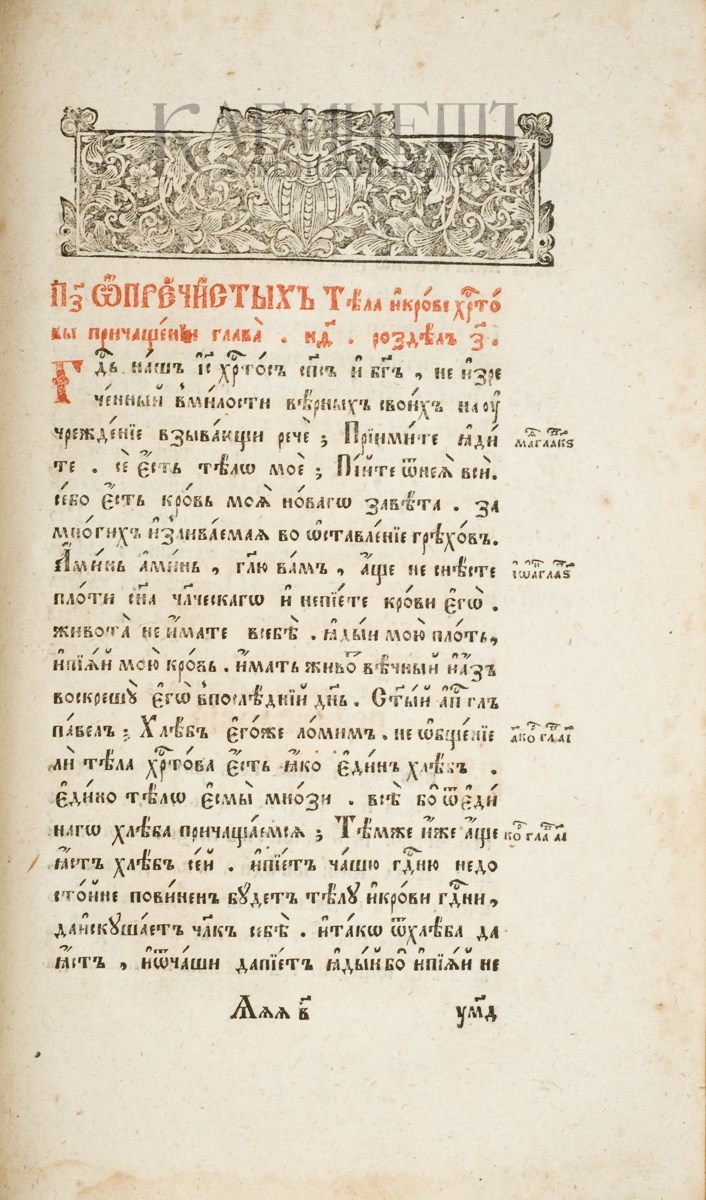 КАБИНЕТЪ
П҃з Ѡ҆ПРЕЧⷭ҇ИСТЫХЪ Тѣла и҆крове хрⷭ҇то́
вы причаще́нїи глава̀ . к҃д . роздѣлъ з҃ .
Гдⷭ҇ь на́шъ і҆с҃ хрⷭ҇то́съ сп҃съ и҆ бг҃ъ , не и҆зре
че́нный вми́лости вѣ́рныхъ свои́хъ на оу҆
чрежде́нїе взыва́ѧши речѐ ; Прїими́те ꙗ҆ди́
те . сѐ є҆́сть тѣ́лѡ моѐ ; Пі́йте ѿнеѧ̀ всѝ .
се́бо є҆́сть кро́вь моѧ̀ но́вагѡ завѣ́та . за
мно́гихъ и҆злива́емаѧ во ѡ҆ставле́нїе грѣхо́въ .
А҆ми́нь а҆ми́нь , гл҃ю ва́мъ , а҆́ще не снѣ́сте
пло́ти сн҃а чл҃ческагѡ и҆ непїе́те кро́ви є҆гѡ̀ .
живота̀ не и҆́мате всебѣ̀ . ꙗ҆ды́и мою̀ пло́ть ,
и҆пїѧ́й мою̀ кро́вь . и҆́мать живо́ⷮ вѣ́чный и҆а҆́зъ
воскрешꙋ̀ є҆гѡ̀ впослѣ́днїй дн҃ь . Ст҃ы́й а҆пⷭ҇лъ
па́велъ ; Хлѣ́бъ є҆го́же ло́мимъ . не ѡ҆бще́нїе
лѝ тѣ́ла хрⷭ҇то́ва є҆́сть ꙗ҆́ко є҆ди́нъ хлѣ́бъ .
є҆ди́но тѣ́лѡ є҆смы̀ мно́зи . всѝ бо ѿє҆ди́
нагѡ хлѣ́ба причаща́емсѧ ; Тѣ́мже и҆́же а҆́ще
ꙗ҆́стъ хлѣ́бъ се́й . и҆пїе́тъ ча́шю гдⷭ҇ню недо
сто́йне пови́ненъ бꙋ́детъ тѣ́лꙋ и҆кро́ви гдⷭ҇ни ,
даи҆скꙋша́етъ чл҃къ себѐ . и҆та́кѡ ѿхлѣ́ба да
ꙗ҆́стъ , и҆ѿча́ши дапїе́тъ ꙗ҆ды́й бо и҆пїѧ́й не
Аѧѧ в҃
умⷭ҇д